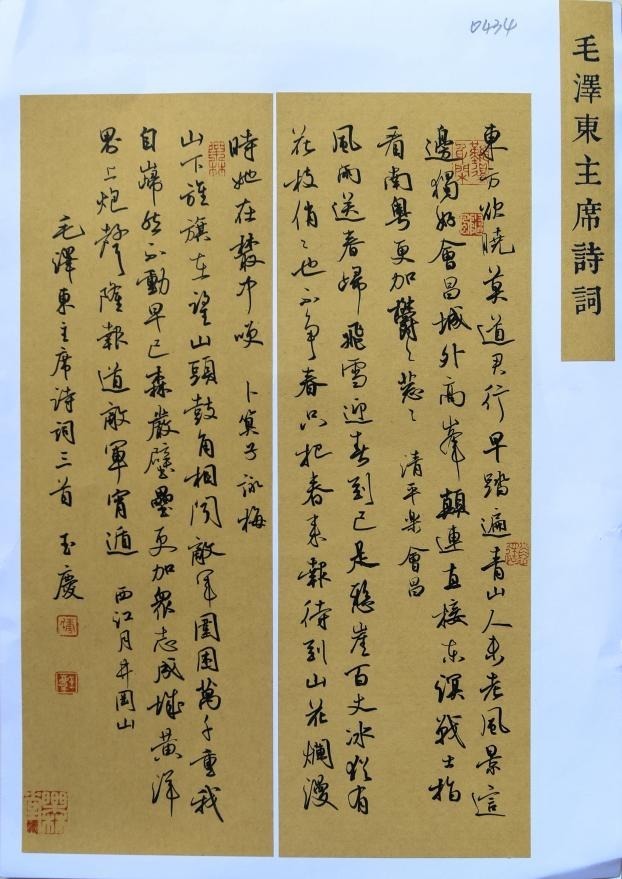 0434
毛澤東主席詩詞
東方欲曉莫道君行早踏遍青山人未老風景這
邊獨好會昌城外高峯顛連直接東溟戰士指
看南粵更加鬱〻葱〻 清平樂會昌
風雨送春歸飛雪迎春到已是懸崖百丈冰猶有
花枝俏〻也不爭春只把春來報待到山花爛漫
時她在叢中咲 卜算子詠梅
山下旌旗在望山頭鼓角相聞敵軍圍困萬千重我
自巋然不動早已森嚴壁壘更加衆志成城黃洋
界上炮聲隆報道敵軍宵遁 西江月井岡山
毛澤東主席詩詞三首 玉慶